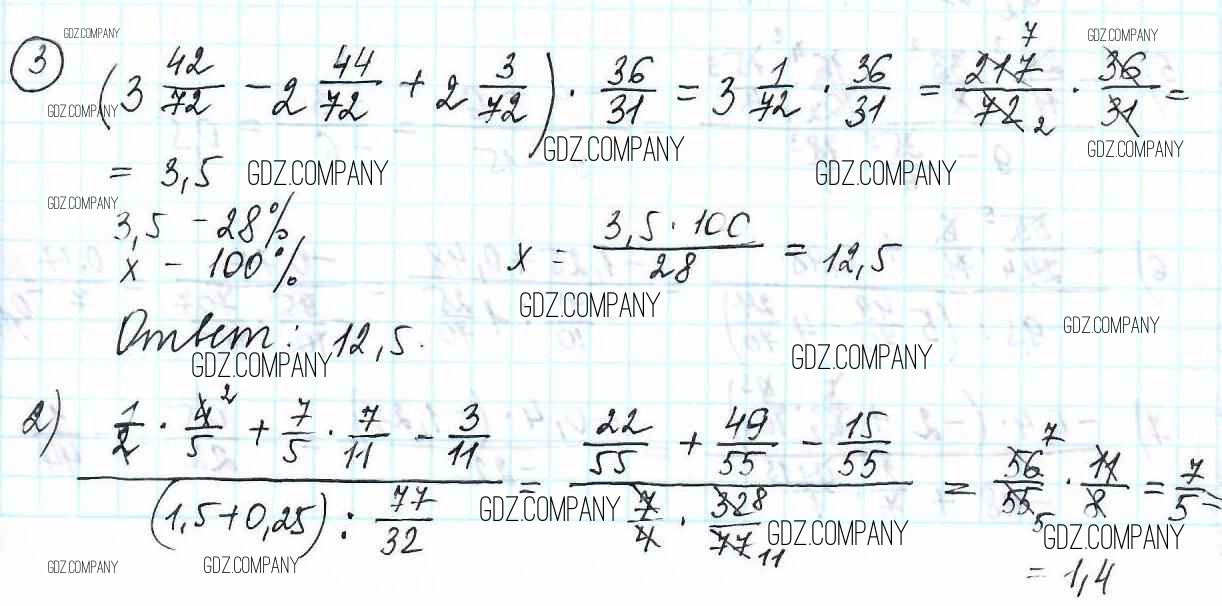 GDZ.COMPANY 7 GDZ.COMPANY
③ (3 42/72 - 2 44/72 + 2 3/72) · 36/31 = 3 1/72 · 36/31 = 217/72 2 · 36/31 =
GDZ.COMPANY GDZ.COMPANY GDZ.COMPANY
= 3,5 GDZ.COMPANY GDZ.COMPANY
GDZ.COMPANY
3,5 - 28%
x - 100% x = 3,5 · 100/28 = 12,5
GDZ.COMPANY GDZ.COMPANY
Ответ: 12,5.
GDZ.COMPANY GDZ.COMPANY
2) (1/2 · 4 2/5 + 7/5 · 7/11 - 3/11)/((1,5+0,25) : 77/32) = (22/55 + 49/55 - 15/55)/(7/4 · 32 8/77 11) = 56 7/55 5 · 11/8 = 7/5 =
GDZ.COMPANY GDZ.COMPANY GDZ.COMPANY
GDZ.COMPANY GDZ.COMPANY = 1,4